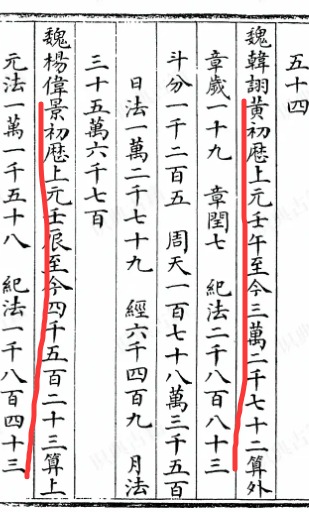 五十四
魏韓翊黃初曆上元壬午至今三萬二千七十二算外
章歲一十九　章閏七　紀法二千八百八十三
斗分一千二百五　周天一百七十八萬三千五百
日法一萬二千七十九　經六千四百九　月法
三十五萬六千七百
魏楊偉景初曆上元壬辰至今四千五百二十三算上
元法一萬一千五十八　紀法一千八百四十三